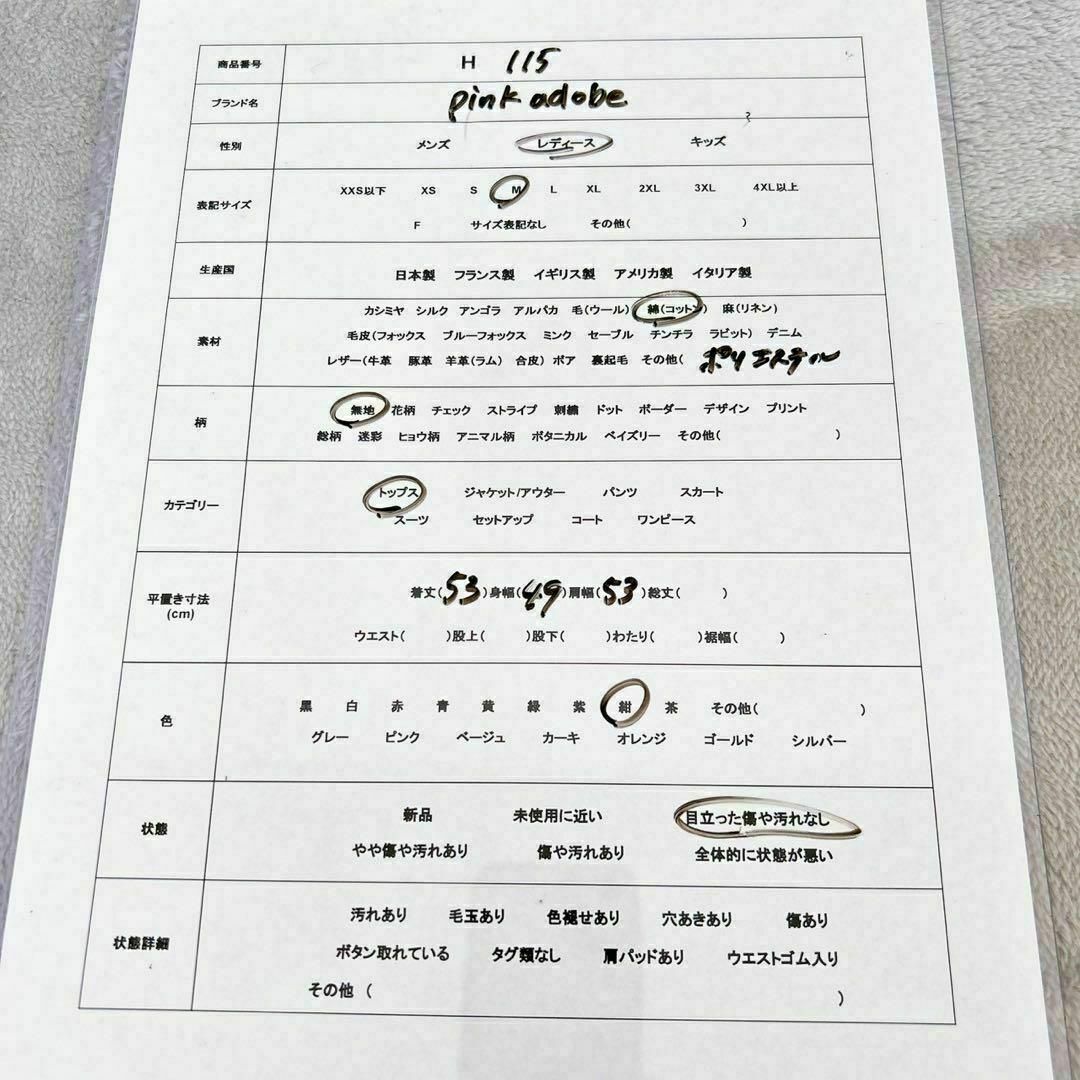 商品番号 H 115
ブランド名 pink adobe
性別 メンズ レディース キッズ
表記サイズ XXS以下 XS S M L XL 2XL 3XL 4XL以上
F サイズ表記なし その他( )
生産国 日本製 フランス製 イギリス製 アメリカ製 イタリア製
素材 カシミヤ シルク アンゴラ アルパカ 毛(ウール) 綿(コットン) 麻(リネン)
毛皮(フォックス ブルーフォックス ミンク セーブル チンチラ ラビット) デニム
レザー(牛革 豚革 羊革(ラム) 合皮) ボア 裏起毛 その他( ポリエステル
柄 無地 花柄 チェック ストライプ 刺繍 ドット ボーダー デザイン プリント
総柄 迷彩 ヒョウ柄 アニマル柄 ボタニカル ペイズリー その他( )
カテゴリー トップス ジャケット/アウター パンツ スカート
スーツ セットアップ コート ワンピース
平置き寸法 (cm) 着丈(53)身幅(49)肩幅(53)総丈( )
ウエスト( )股上( )股下( )わたり( )裾幅( )
色 黒 白 赤 青 黄 緑 紫 紺 茶 その他( )
グレー ピンク ベージュ カーキ オレンジ ゴールド シルバー
状態 新品 未使用に近い 目立った傷や汚れなし
やや傷や汚れあり 傷や汚れあり 全体的に状態が悪い
状態詳細 汚れあり 毛玉あり 色褪せあり 穴あきあり 傷あり
ボタン取れている タグ類なし 肩パッドあり ウエストゴム入り
その他 ( )